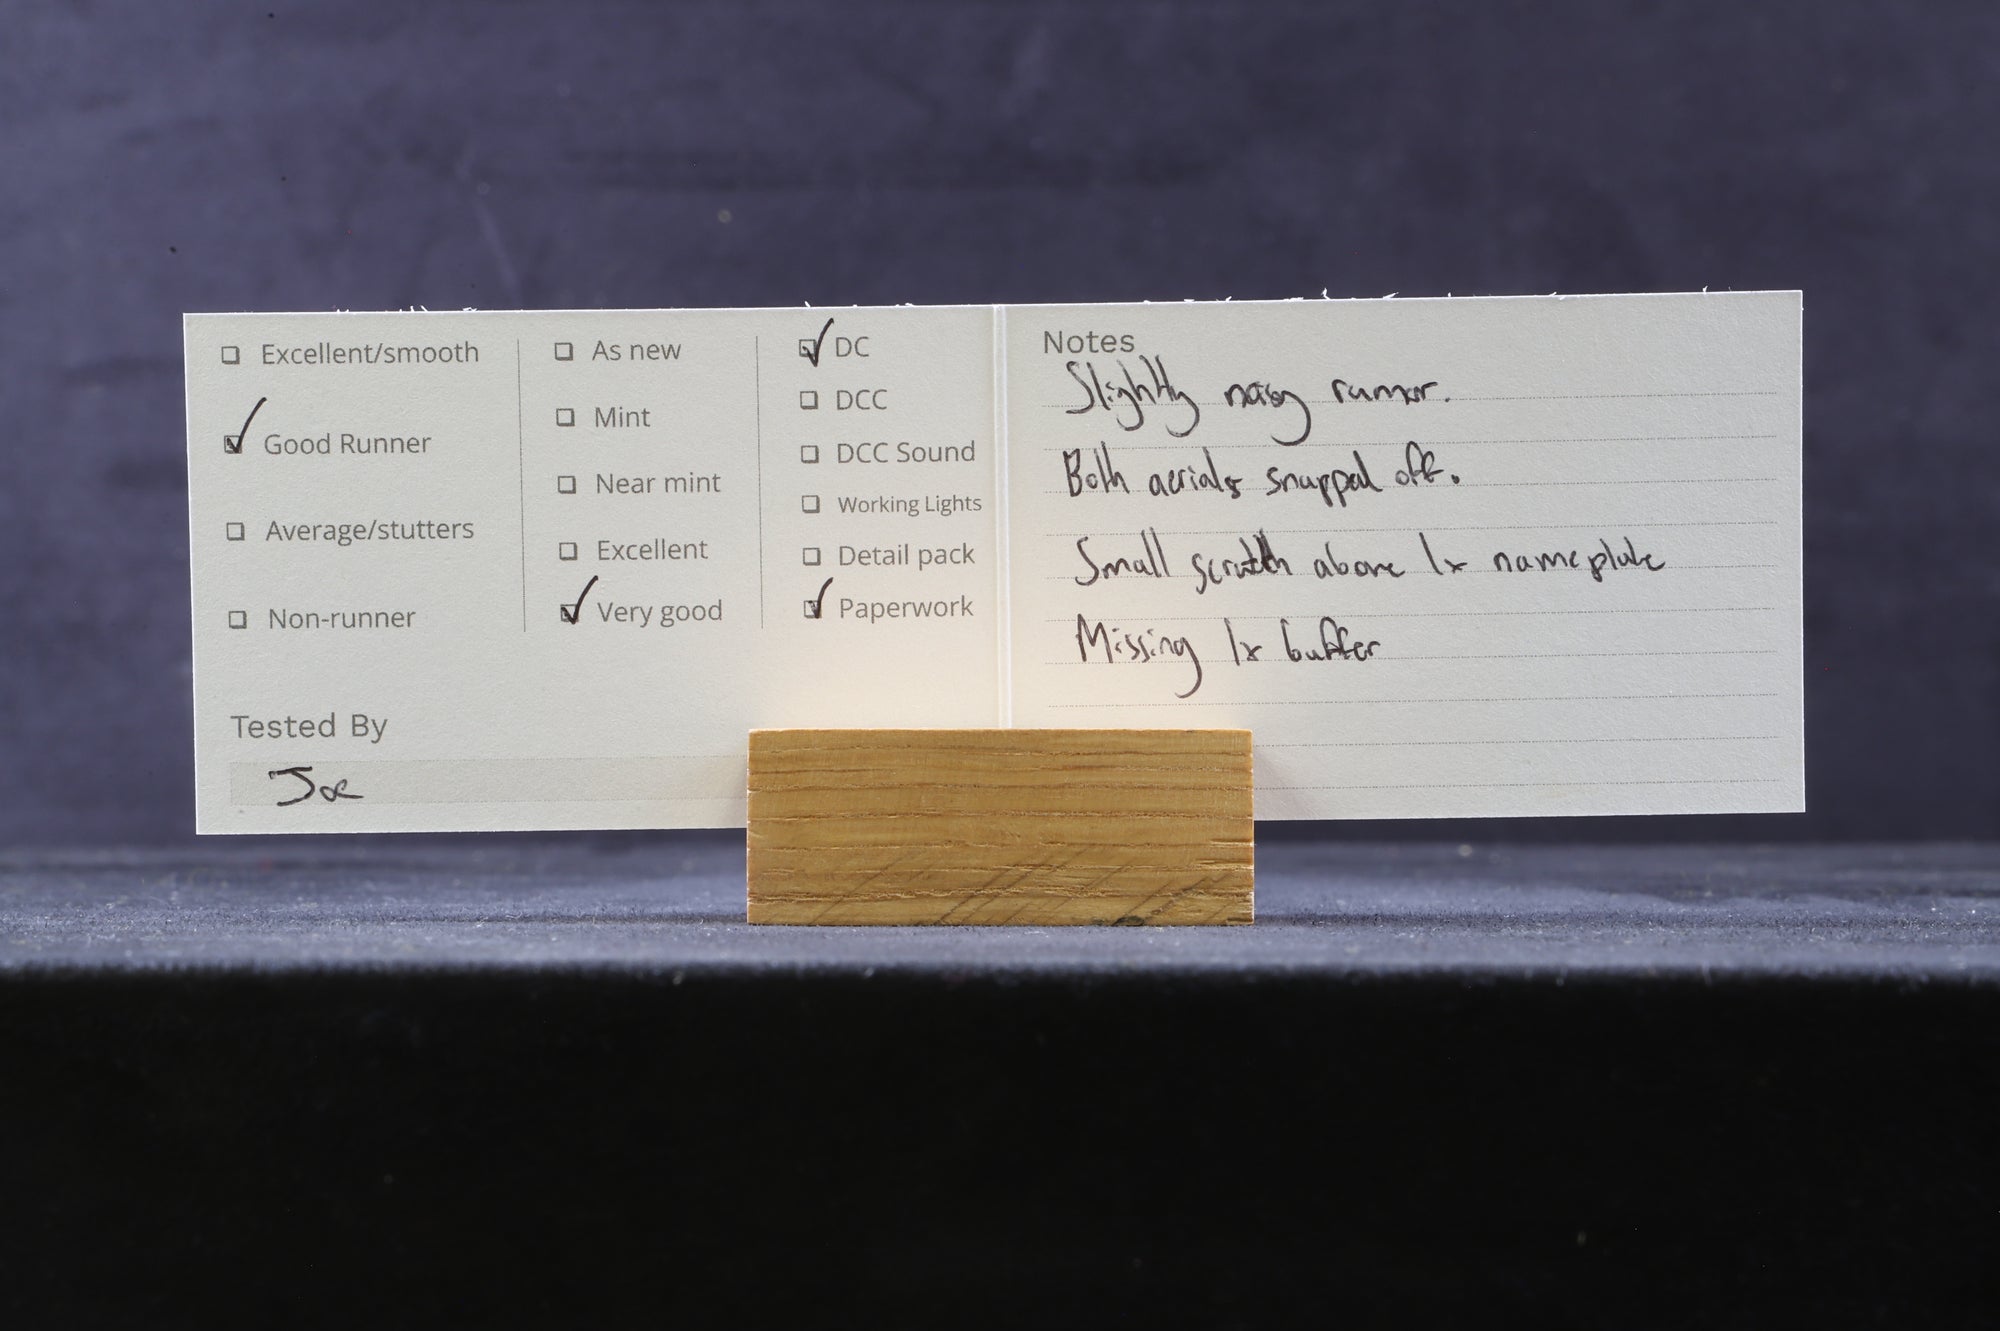 Excellent/smooth
Good Runner
Average/stutters
Non-runner
As new
Mint
Near mint
Excellent
Very good
DC
DCC
DCC Sound
Working Lights
Detail pack
Paperwork
Tested By
Joe
Notes
Slightly noisy runner.
Both aerials snapped off.
Small scratch above 1x nameplate
Missing 1x buffer